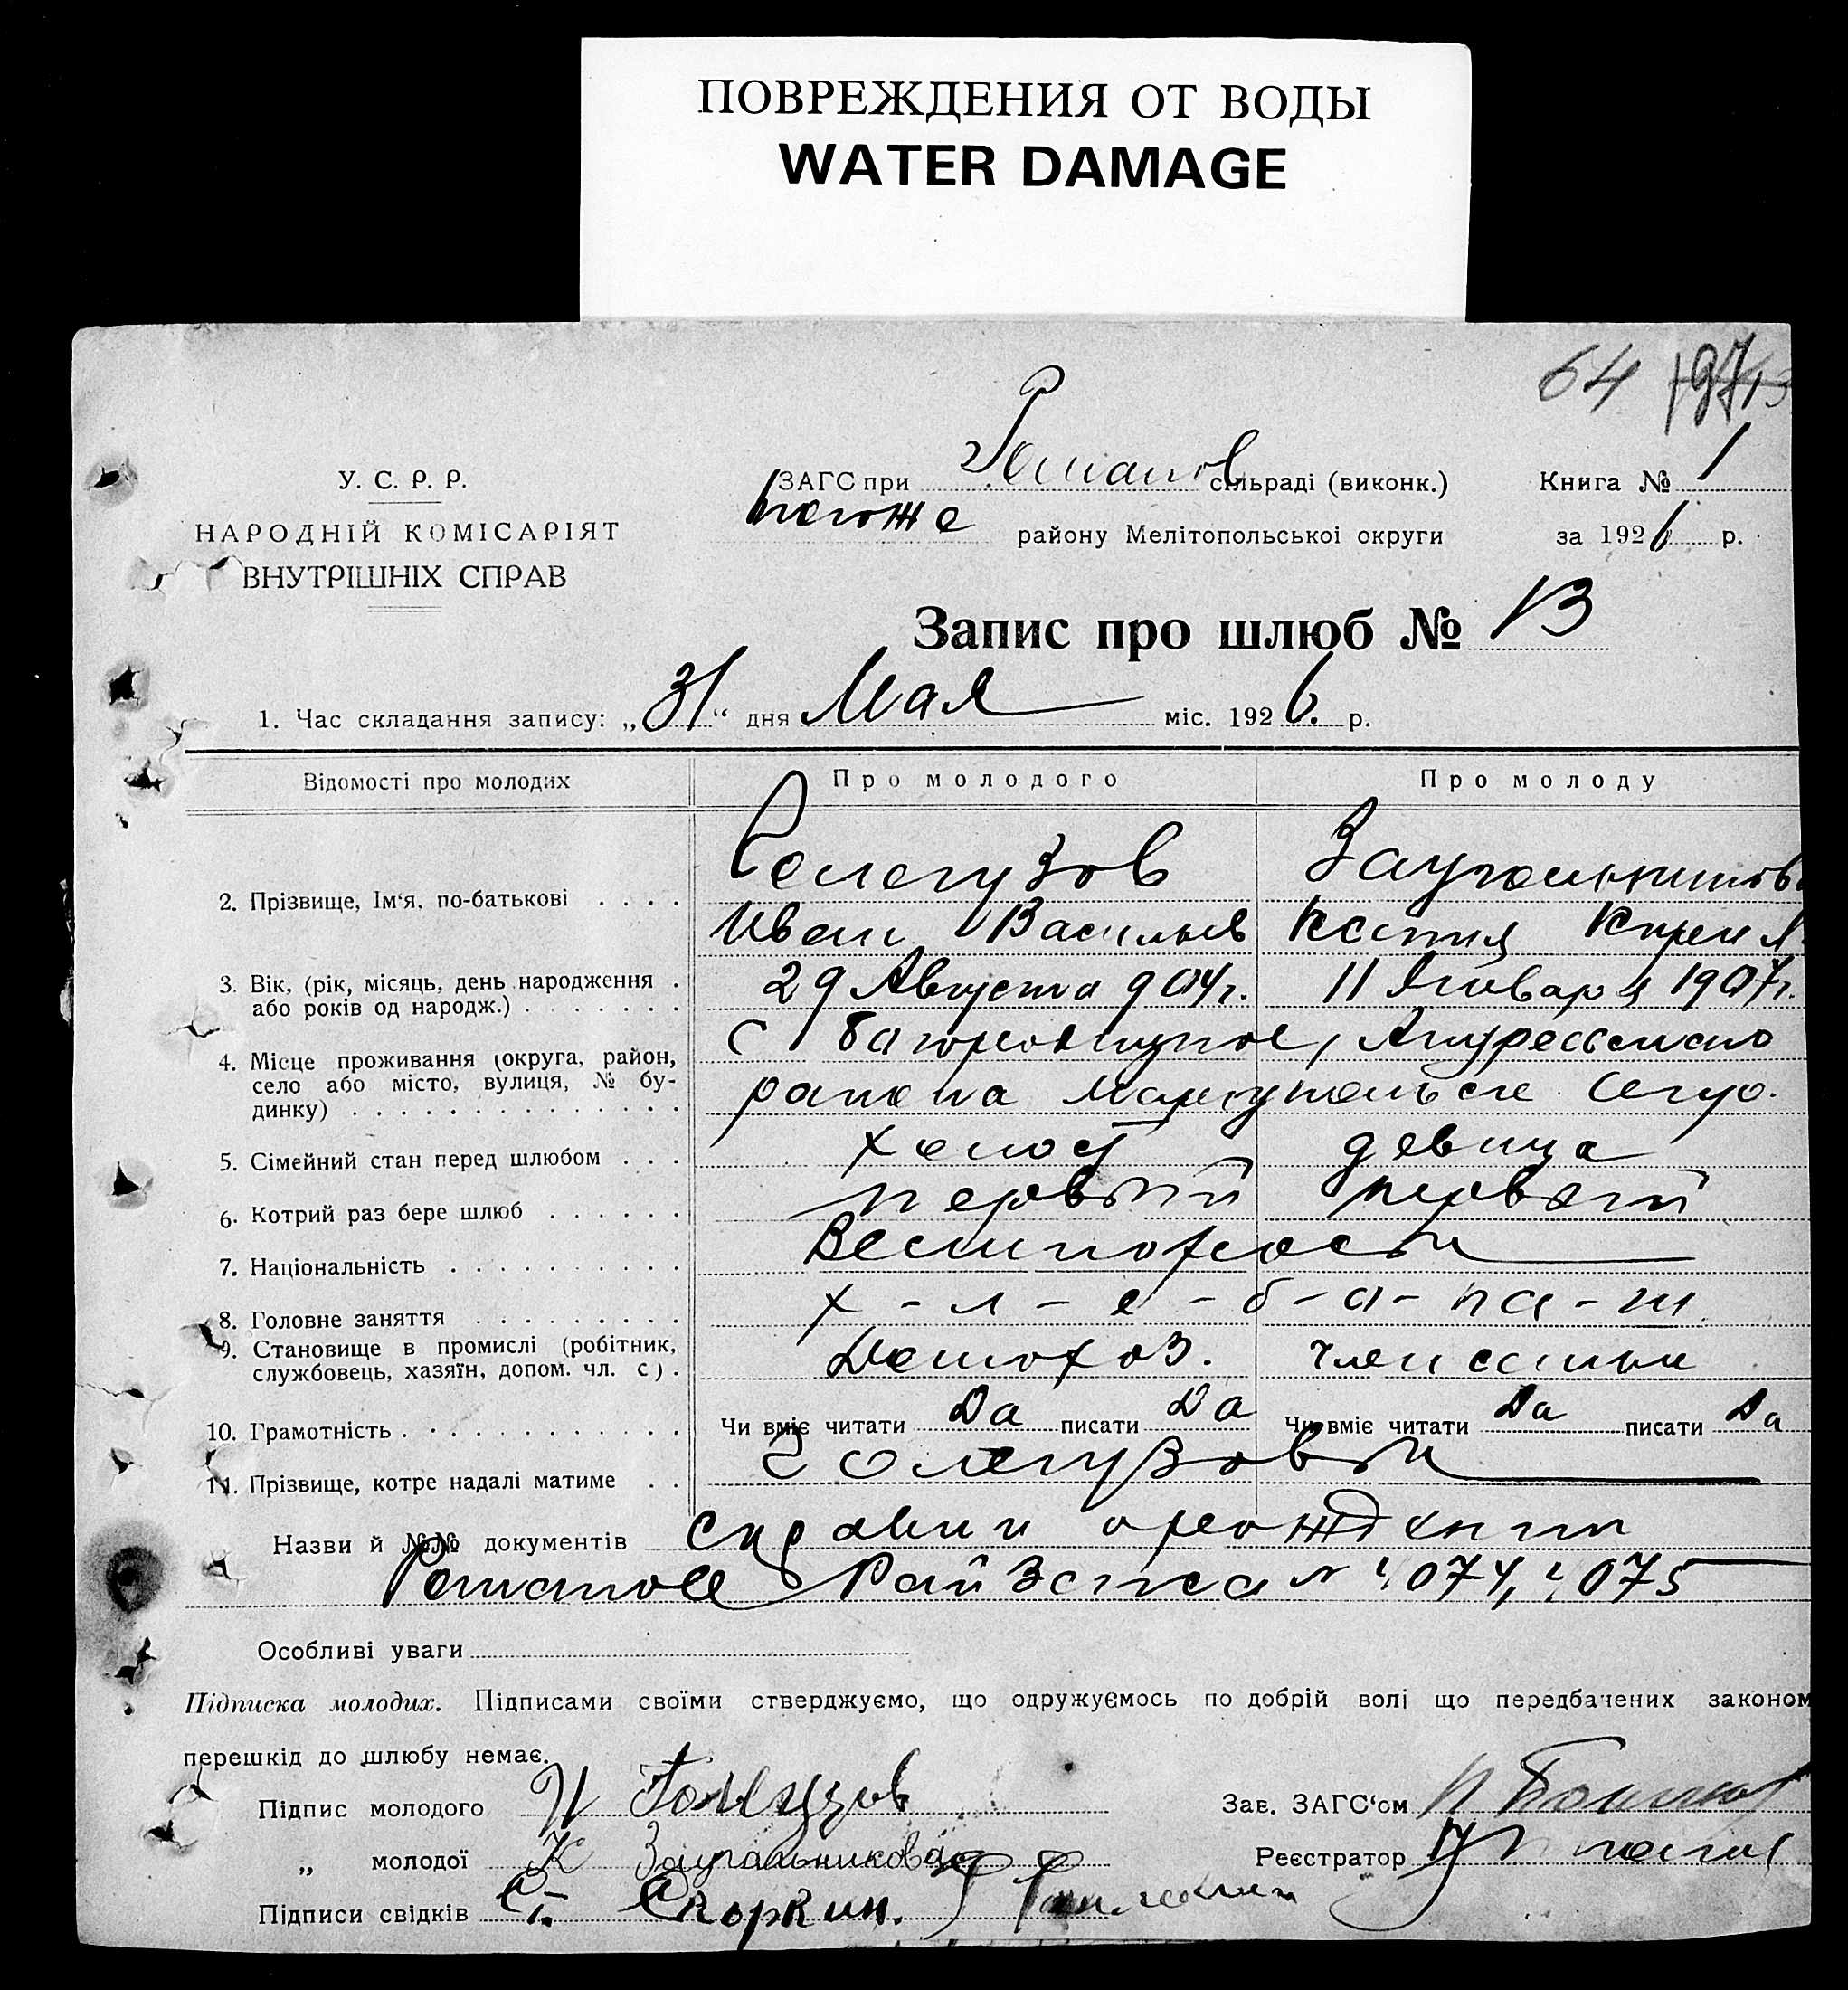 ПОВРЕЖДЕНИЯ ОТ ВОДЫ
WATER DAMAGE
64
У. С. Р. Р.
НАРОДНІЙ КОМІСАРІЯТ
ВНУТРІШНІХ СПРАВ
ЗАГС при Романов сільраді (виконк.)
Книга № 1
району Мелітопольської округи
за 1926 р.
Запис про шлюб № 13
1. Час складання запису: „31“ дня Мая міс. 1926. р.
Відомості про молодих
Про молодого
Про молоду
2. Прізвище, Ім'я, по-батькові
Иван Васильев
Ксения
3. Вік, (рік, місяць, день народження або років од народж.)
29 Августа 904 г.
11 Января 1907 г.
4. Місце проживання (округа, район, село або місто, вулиця, № будинку)
с
района
5. Сімейний стан перед шлюбом
холост
девица
6. Котрий раз бере шлюб
первый
первый
7. Національність
8. Головне заняття
х-л-е-б-о-па-ш
9. Становище в промислі (робітник, службовець, хазяїн, допом. чл. с)
Домохоз.
член семьи
10. Грамотність
Чи вміє читати Да писати Да
Чи вміє читати Да писати Да
11. Прізвище, котре надалі матиме
Голегузовы
Назви й №№ документів справки о рождении
Романов РайЗагса № 4074, 4075
Особливі уваги
Підписка молодих. Підписами своїми стверджуємо, що одружуємось по добрій волі що передбачених законом
перешкід до шлюбу немає.
Підпис молодого И
Зав. ЗАГС'ом
„ молодої К Заугольникова
Реєстратор
Підписи свідків Ст. Скоркин.